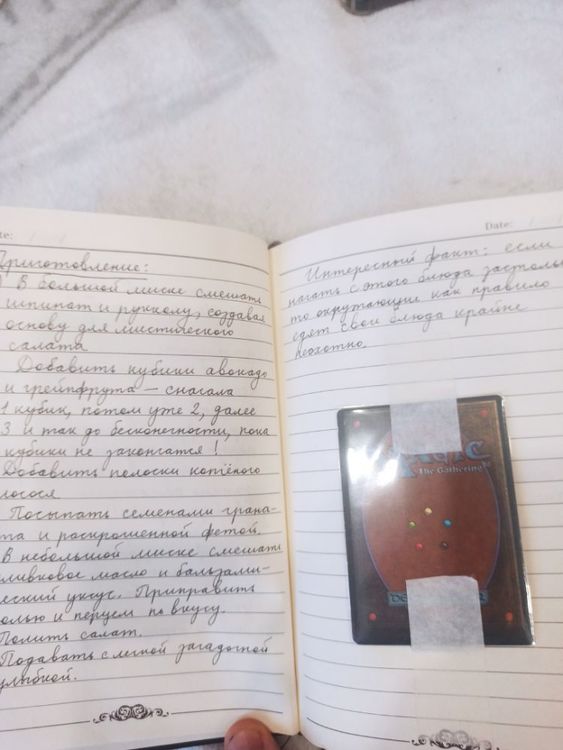 te:
Приготовление:
) В большой миске смешать
шпинат и рукколу, создавая
основу для мистического
салата
Добавить кубики авокадо
и грейпфрута — сначала
1 кубик, потом уже 2, далее
3 и так до бесконечности, пока
кубики не закончатся!
Добавить полоски копчёного
лосося
Посыпать семенами грана-
та и раскрошенной фетой.
В небольшой миске смешать
оливковое масло и бальзами-
ческий уксус. Приправить
солью и перцем по вкусу.
Полить салат.
Подавать с легкой загадочной
улыбкой.
Date:
Интересный факт: если
начать с этого блюда застолье
то окружающие как правило
едят свои блюда крайне
неохотно.
MAGIC
The Gathering®